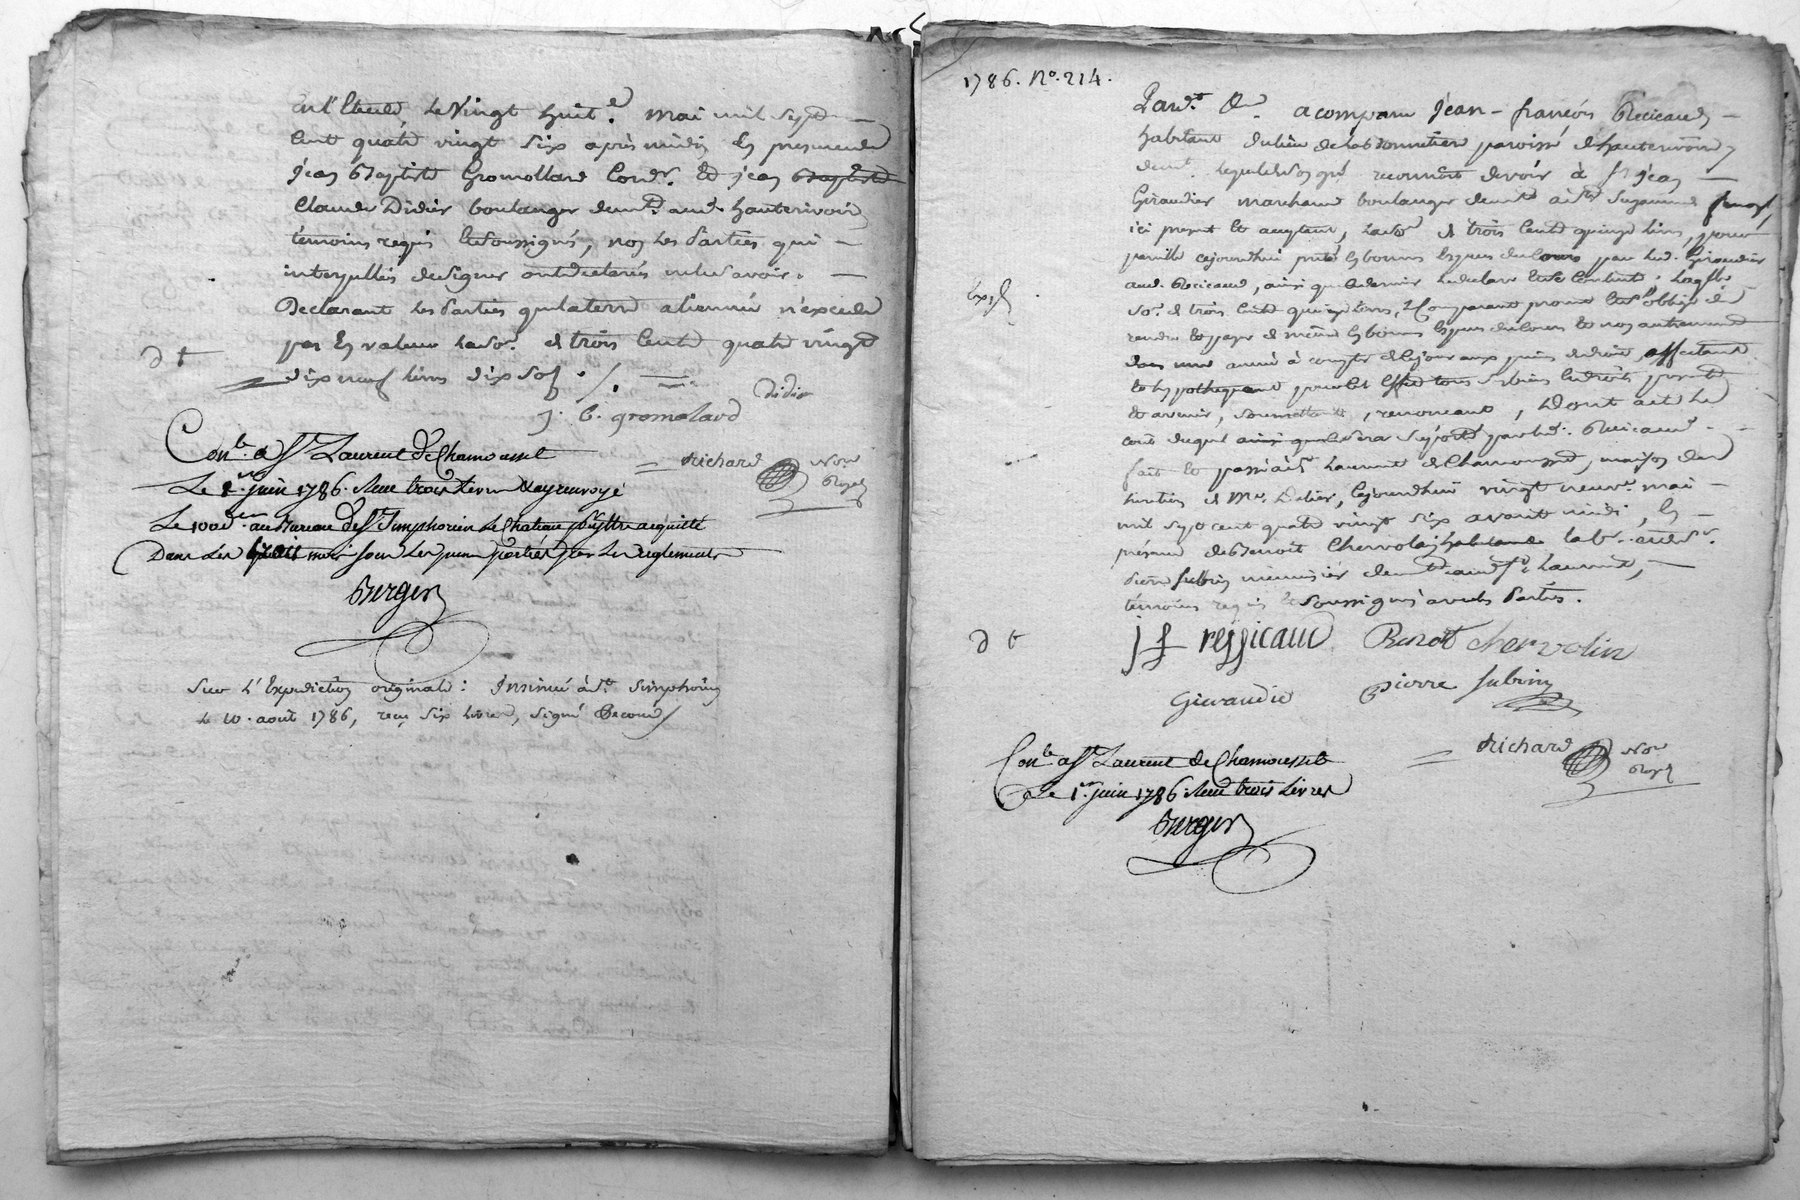 en l'Etude, le Vingt huit.e mai mil sept
cent quatre vingt six après midi, En presence de
jean Baptiste Gromollard Cord.r Et jean Baptiste
Claude Didier boulanger dem.t aud. hauterivoire
témoins requis Et soussignés, non les Parties qui
interpellés de signer ont déclarés ne le savoir.
Declarant les Parties que la terre alienné n'excede
pas En valeur la so.e de trois Cents quatre vingt
dix neuf livres dix sols ./.
d t
didier
j. b. gromolard
Con.lé a S.t Laurent de Chamousset
richard No.re Royal
Le 1.er juin 1786. Reçu trois livres & ay renvoyé
Le 100.e d.er au Bureau de S.t Simphorien Le Chateau p.r y être acquitté
Dans les trois mois sous les peines portées par les reglements
Berger
Sur l'Expedition originale: Insinué à S.t Simphorien
le 10. août 1786, reçu six livres, signé Decour
1786. N.o 214.
Pard.t &a. a comparu jean-françois Ressicaud
habitant du lieu de la Bonnetière paroisse d'hauterivoire
lequel de son gré reconnoit devoir à S.r jean
Giraudier marchand boulanger demt.
ici present Et acceptant, la so.e de trois Cents quinze livres, pour
pareille cejourd'huy prêté En bonnes Especes du Cours par led. Giraudier
aud. Ressicaud, ainsi que ce dernier le declare Et s'en Contente. Laq.lle
Exp.é
so.e de trois Cents quinze livres, le Comparant promet Et s'oblige de
rendre Et payer de même En bonnes Especes du Cours Et non autrement
dans une année à compter de ce jour aux peines de droit, affectant
Et hypothequant pour cet Effet tous ses biens Et droits presents
Et avenir, soumettant, renonceant, Dont acte le
cout duquel sera suporté par led. Ressicaud.
fait Et passé à S.t Laurent de Chamousset, maison du
de M.e Delier, Cejourd'hui vingt neuv.e mai
mil sept cent quatre vingt six avant midi, En
présence de Benoit Chervolin habitant lab.r aud.
Pierre Subrin menuisier dem.t aud. S.t Laurent,
témoins requis Et soussignés avec les Parties.
d t
j f ressicaud Benoit chervolin
Giraudié pierre subrin
richard No.re Royal
Con.lé a S.t Laurent de Chamousset
Le 1.er juin 1786. Reçu trois Livres
Berger